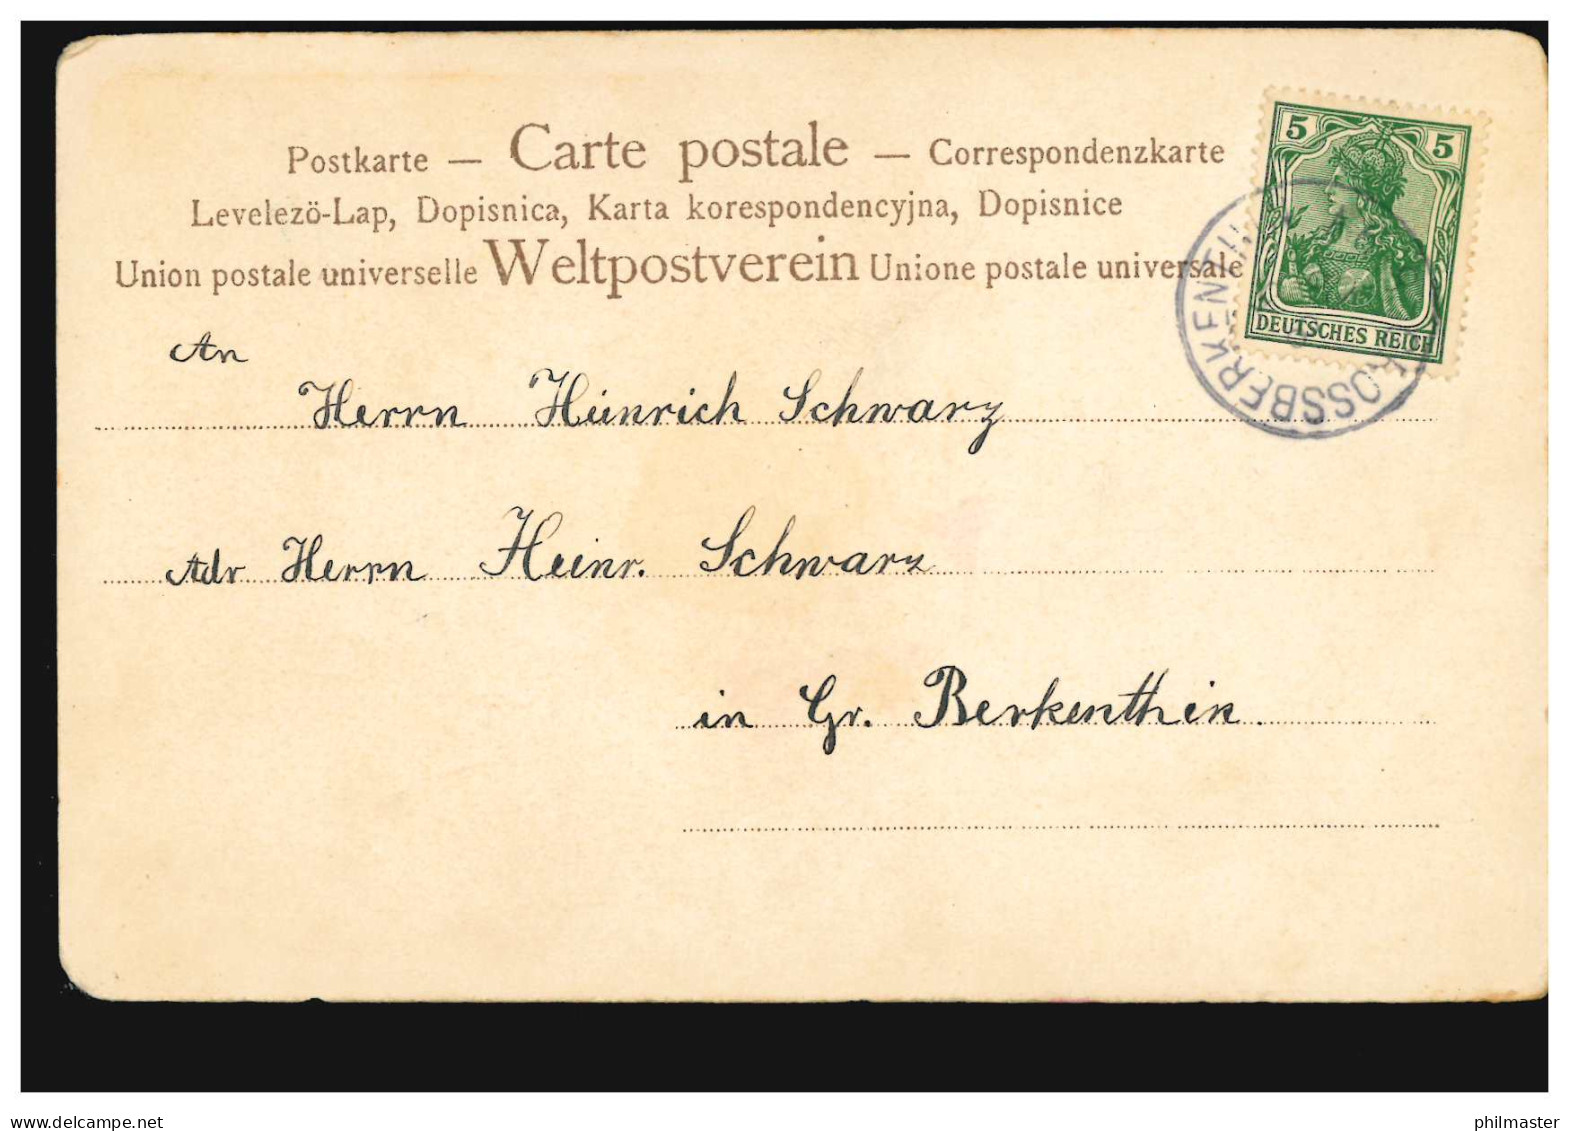 Postkarte — Carte postale — Correspondenzkarte
Levelezö-Lap, Dopisnica, Karta korespondencyjna, Dopisnice
Union postale universelle Weltpostverein Unione postale universale
5 5
DEUTSCHES REICH
ROSSBERKENTHIN
An
Herrn Heinrich Schwarz
Adr Herrn Heinr. Schwarz
in Gr. Berkenthin.
www.delcampe.net
philmaster